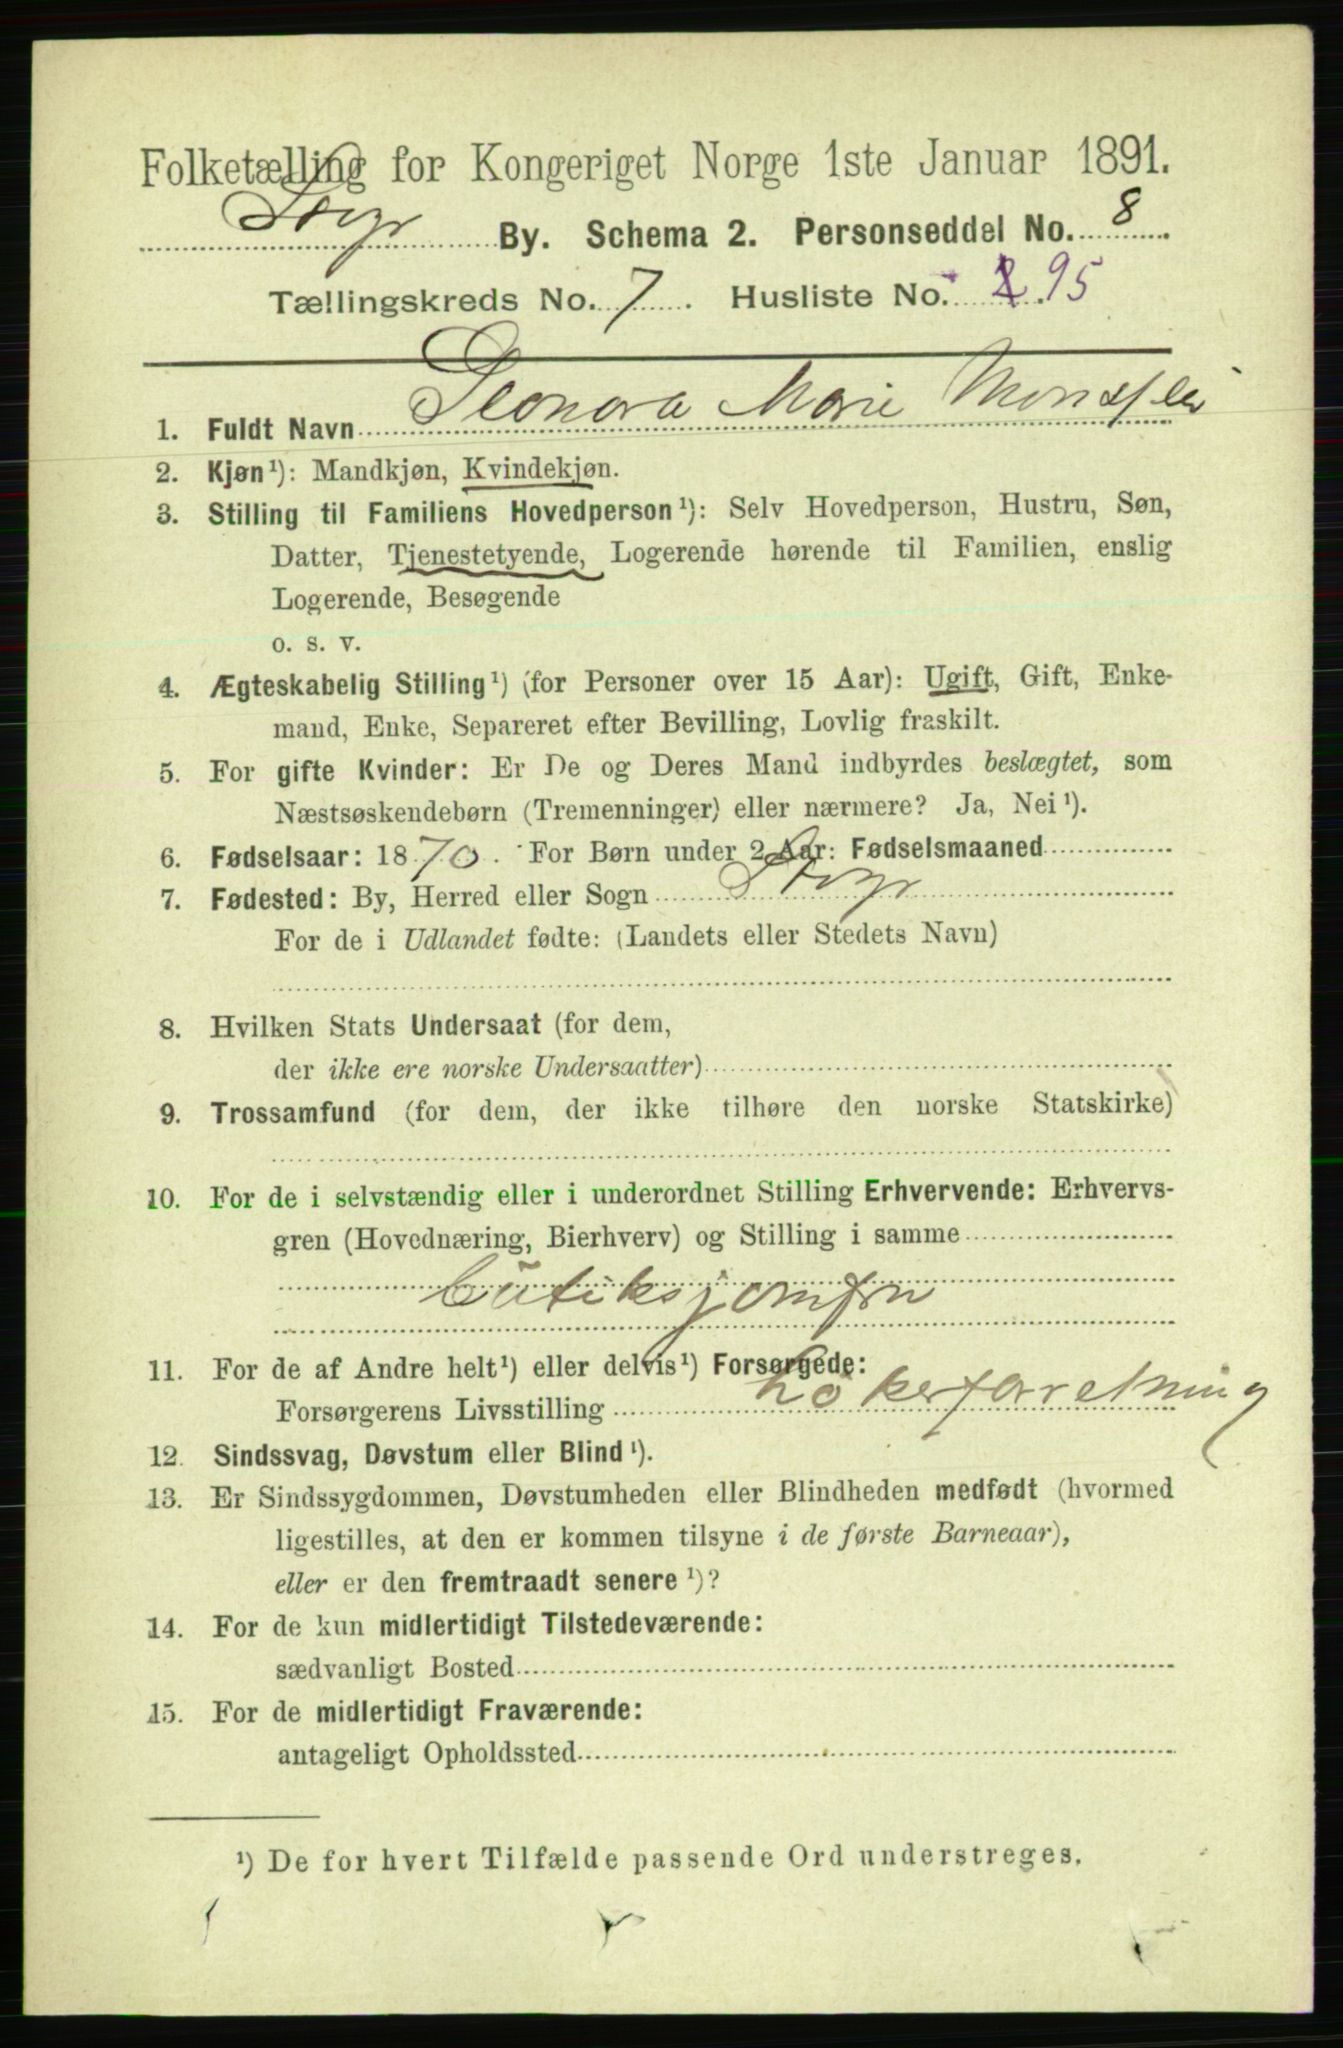 Folketælling for Kongeriget Norge 1ste Januar 1891.
By. Schema 2. Personseddel No. 8
Tællingskreds No. 7. Husliste No. 95
1. Fuldt Navn Leonora Marie
2. Kjøn ¹): Mandkjøn, Kvindekjøn.
3. Stilling til Familiens Hovedperson ¹): Selv Hovedperson, Hustru, Søn,
Datter, Tjenestetyende, Logerende hørende til Familien, enslig
Logerende, Besøgende
o. s. v.
4. Ægteskabelig Stilling ¹) (for Personer over 15 Aar): Ugift, Gift, Enke-
mand, Enke, Separeret efter Bevilling, Lovlig fraskilt.
5. For gifte Kvinder: Er De og Deres Mand indbyrdes beslægtet, som
Næstsøskendebørn (Tremenninger) eller nærmere? Ja, Nei ¹).
6. Fødselsaar: 1870. For Børn under 2 Aar: Fødselsmaaned
7. Fødested: By, Herred eller Sogn
For de i Udlandet fødte: (Landets eller Stedets Navn)
8. Hvilken Stats Undersaat (for dem,
der ikke ere norske Undersaatter)
9. Trossamfund (for dem, der ikke tilhøre den norske Statskirke)
10. For de i selvstændig eller i underordnet Stilling Erhvervende: Erhvervs-
gren (Hovednæring, Bierhverv) og Stilling i samme
Butiksjomfru
11. For de af Andre helt ¹) eller delvis ¹) Forsørgede:
Forsørgerens Livsstilling
12. Sindssvag, Døvstum eller Blind ¹).
13. Er Sindssygdommen, Døvstumheden eller Blindheden medfødt (hvormed
ligestilles, at den er kommen tilsyne i de første Barneaar),
eller er den fremtraadt senere ¹)?
14. For de kun midlertidigt Tilstedeværende:
sædvanligt Bosted
15. For de midlertidigt Fraværende:
antageligt Opholdssted
¹) De for hvert Tilfælde passende Ord understreges.